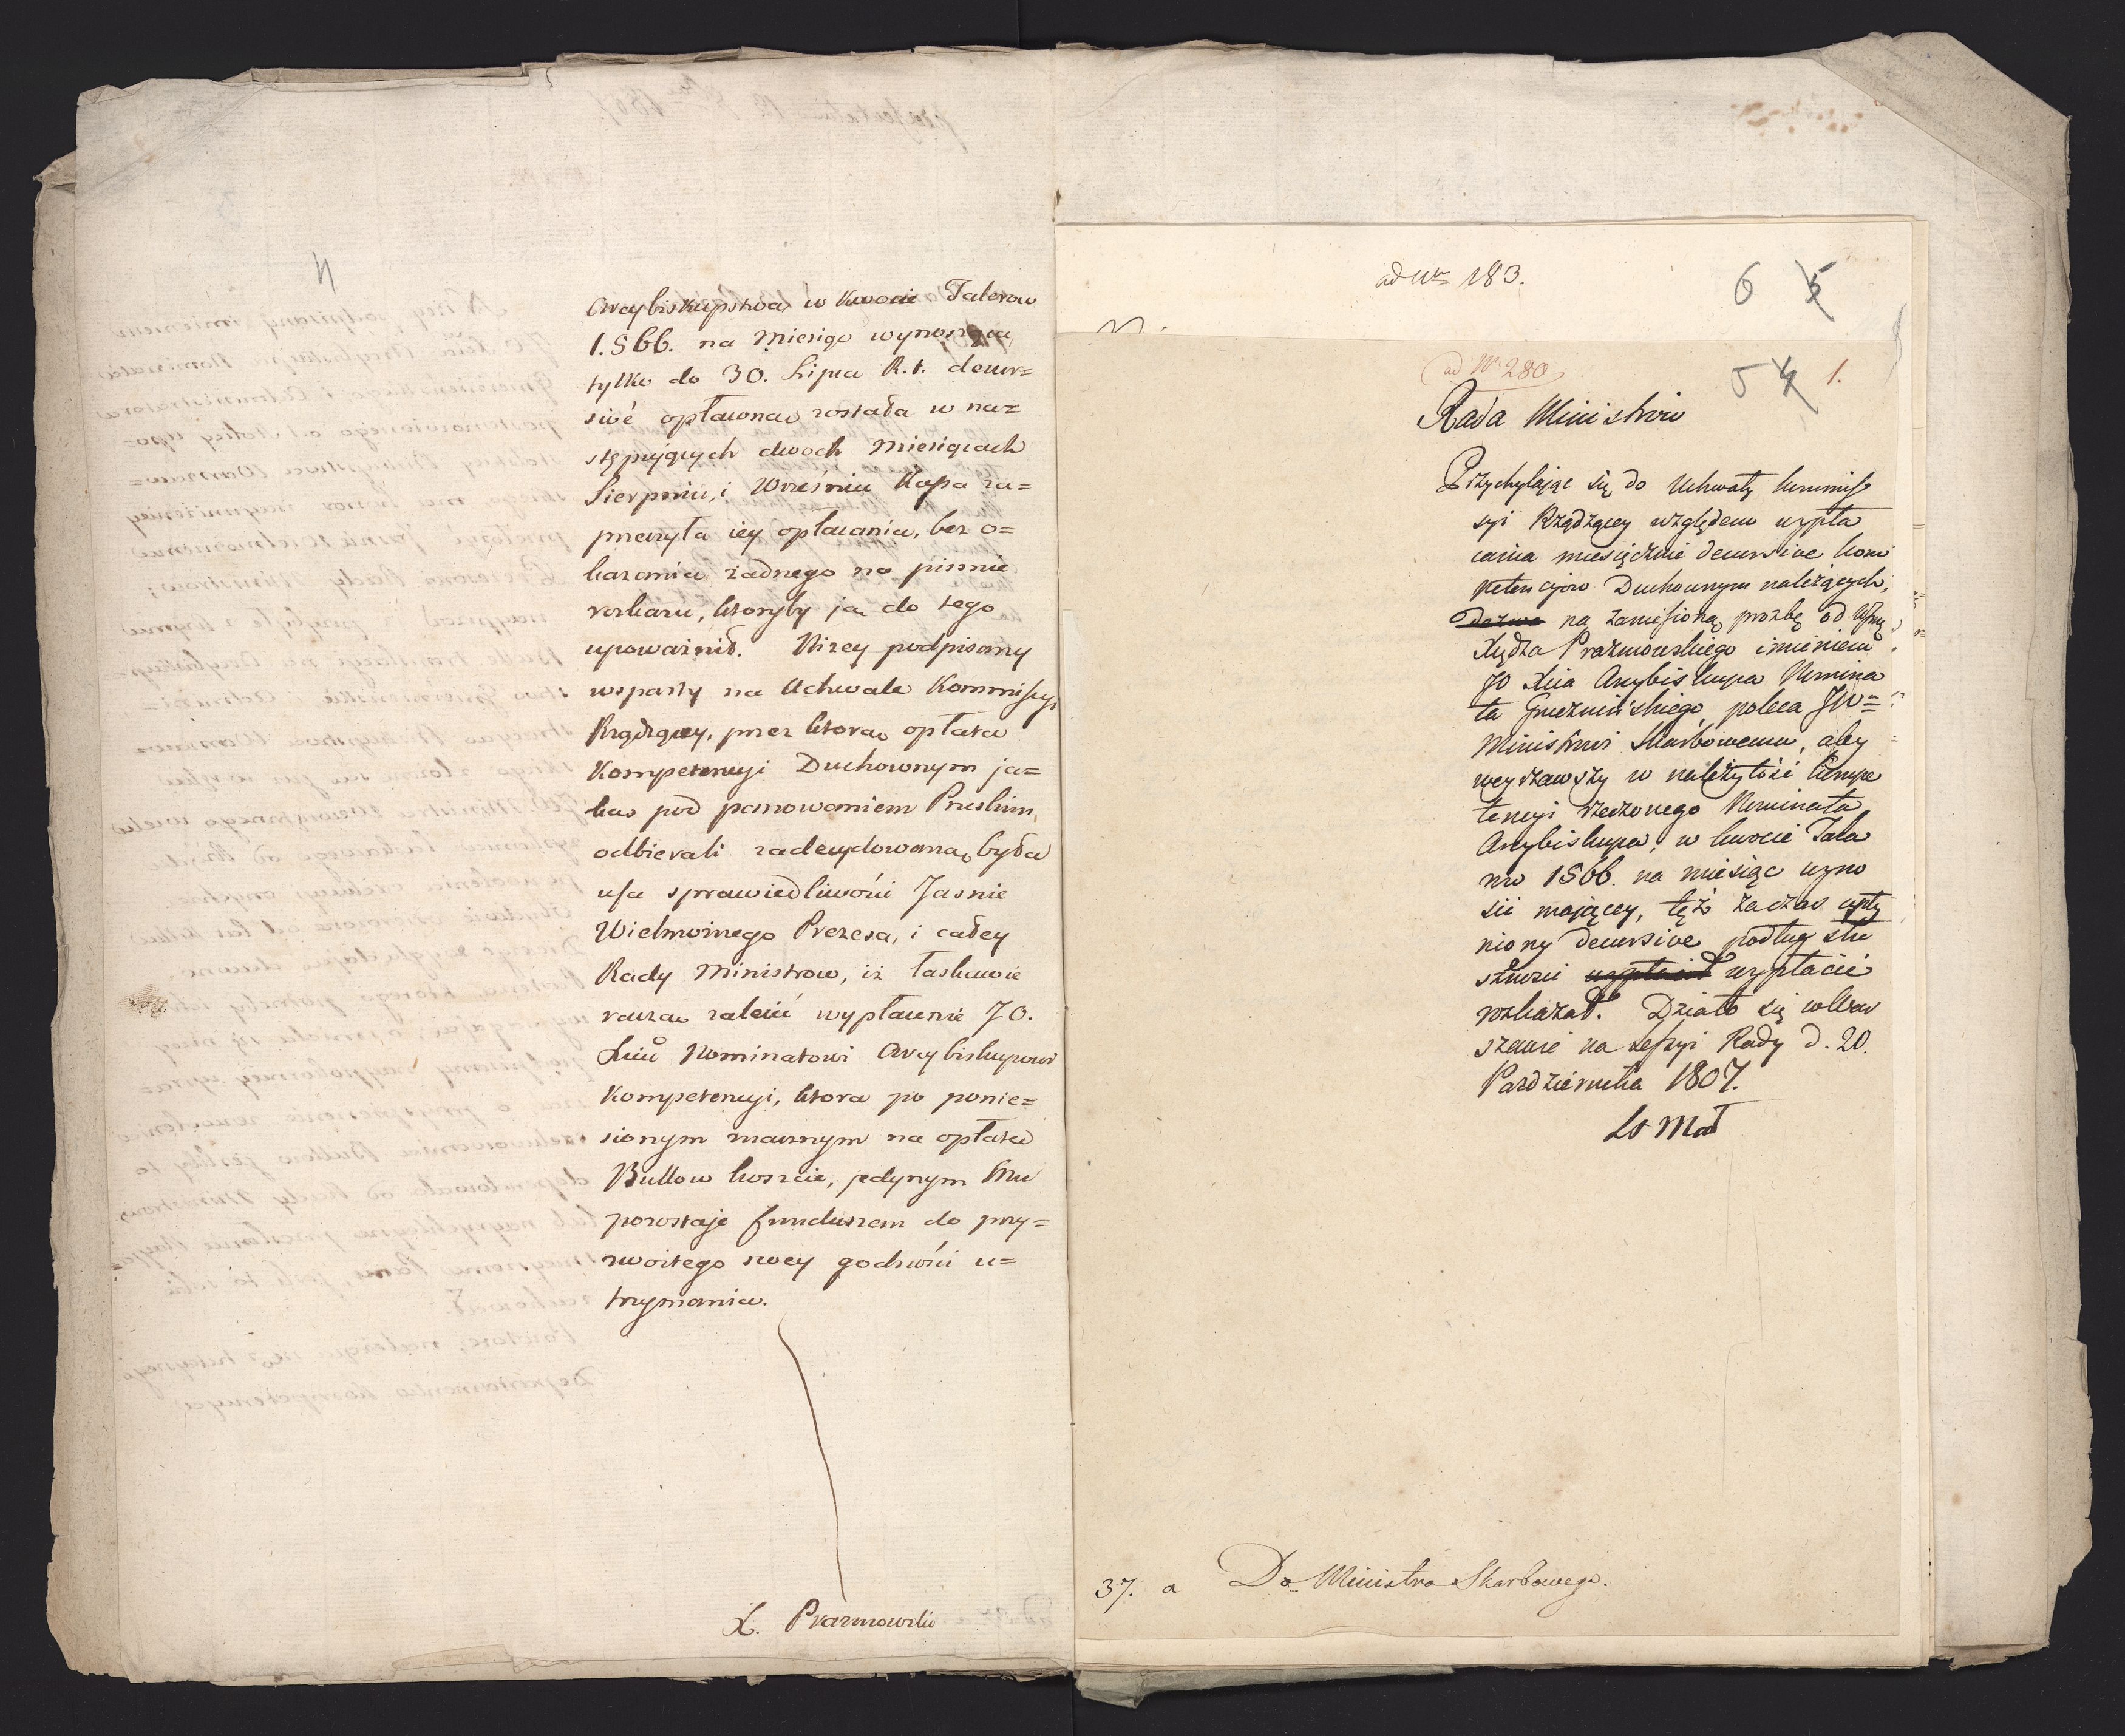 4
Arcybiskupstwa w kwocie Talerow
1.866. na Miesiąc wynosząca
tylko do 30. Lipca R. t. decur=
sivé opłacona została w na=
stępuiących dwoch Miesiącach
Sierpniu, i Wrześniu Kassa za=
przeczyła iey opłacania, bez o=
kazania żadnego na piśmie
rozkazu, ktoryby ją do tego
upoważnił. Niżey podpisany
wsparty na Uchwale Kommissyi
Rządzącey, przez ktorą opłata
Kompetencyi Duchownym ja=
ką pod panowaniem Pruskim,
odbierali zadecydowaną była
ufa sprawiedliwości Jasnie
Wielmożnego Prezesa, i całey
Rady Ministrow, iż łaskawie
raczą zalecić wypłacenie JO.
Xciu Nominatowi Arcybiskupowi
Kompetencyi, ktora po ponie=
sionym znacznym na opłatę
Bullow koszcie, jedynym Mu
pozostaje funduszem do przy=
zwoitego swey godności u=
trzymania.
X. Prazmowski
ad Nr 183.
6 5
ad Nr 280
5 4 1.
Rada Ministrów
Przychylając się do Uchwały kommiss
syi Rządzącey względem wypła
cania miesięcznie decursive kom
petencyow Duchownym należących,
na zaniesioną prozbę od Wgo
Xiędza Prazmowskiego imieniem
JO Xcia Arcybiskupa Nomina
ta Gnieznińskiego poleca JW=
Ministrowi Skarbowemu, aby
weyrzawszy w należytość kompe
tencyi rzeczonego Nominata
Arcybiskupa, w kwocie Tala
rów 1866. na miesiąc wyno
sić mającey, tęż za czas upły
niony decursive podług słu
szności wypłacić wypłacić
rozkazał. Działo się w War
szawie na sessyi Rady d. 20.
Pazdziernika 1807.
LS Mał
37. a Do Ministra Skarbowego.